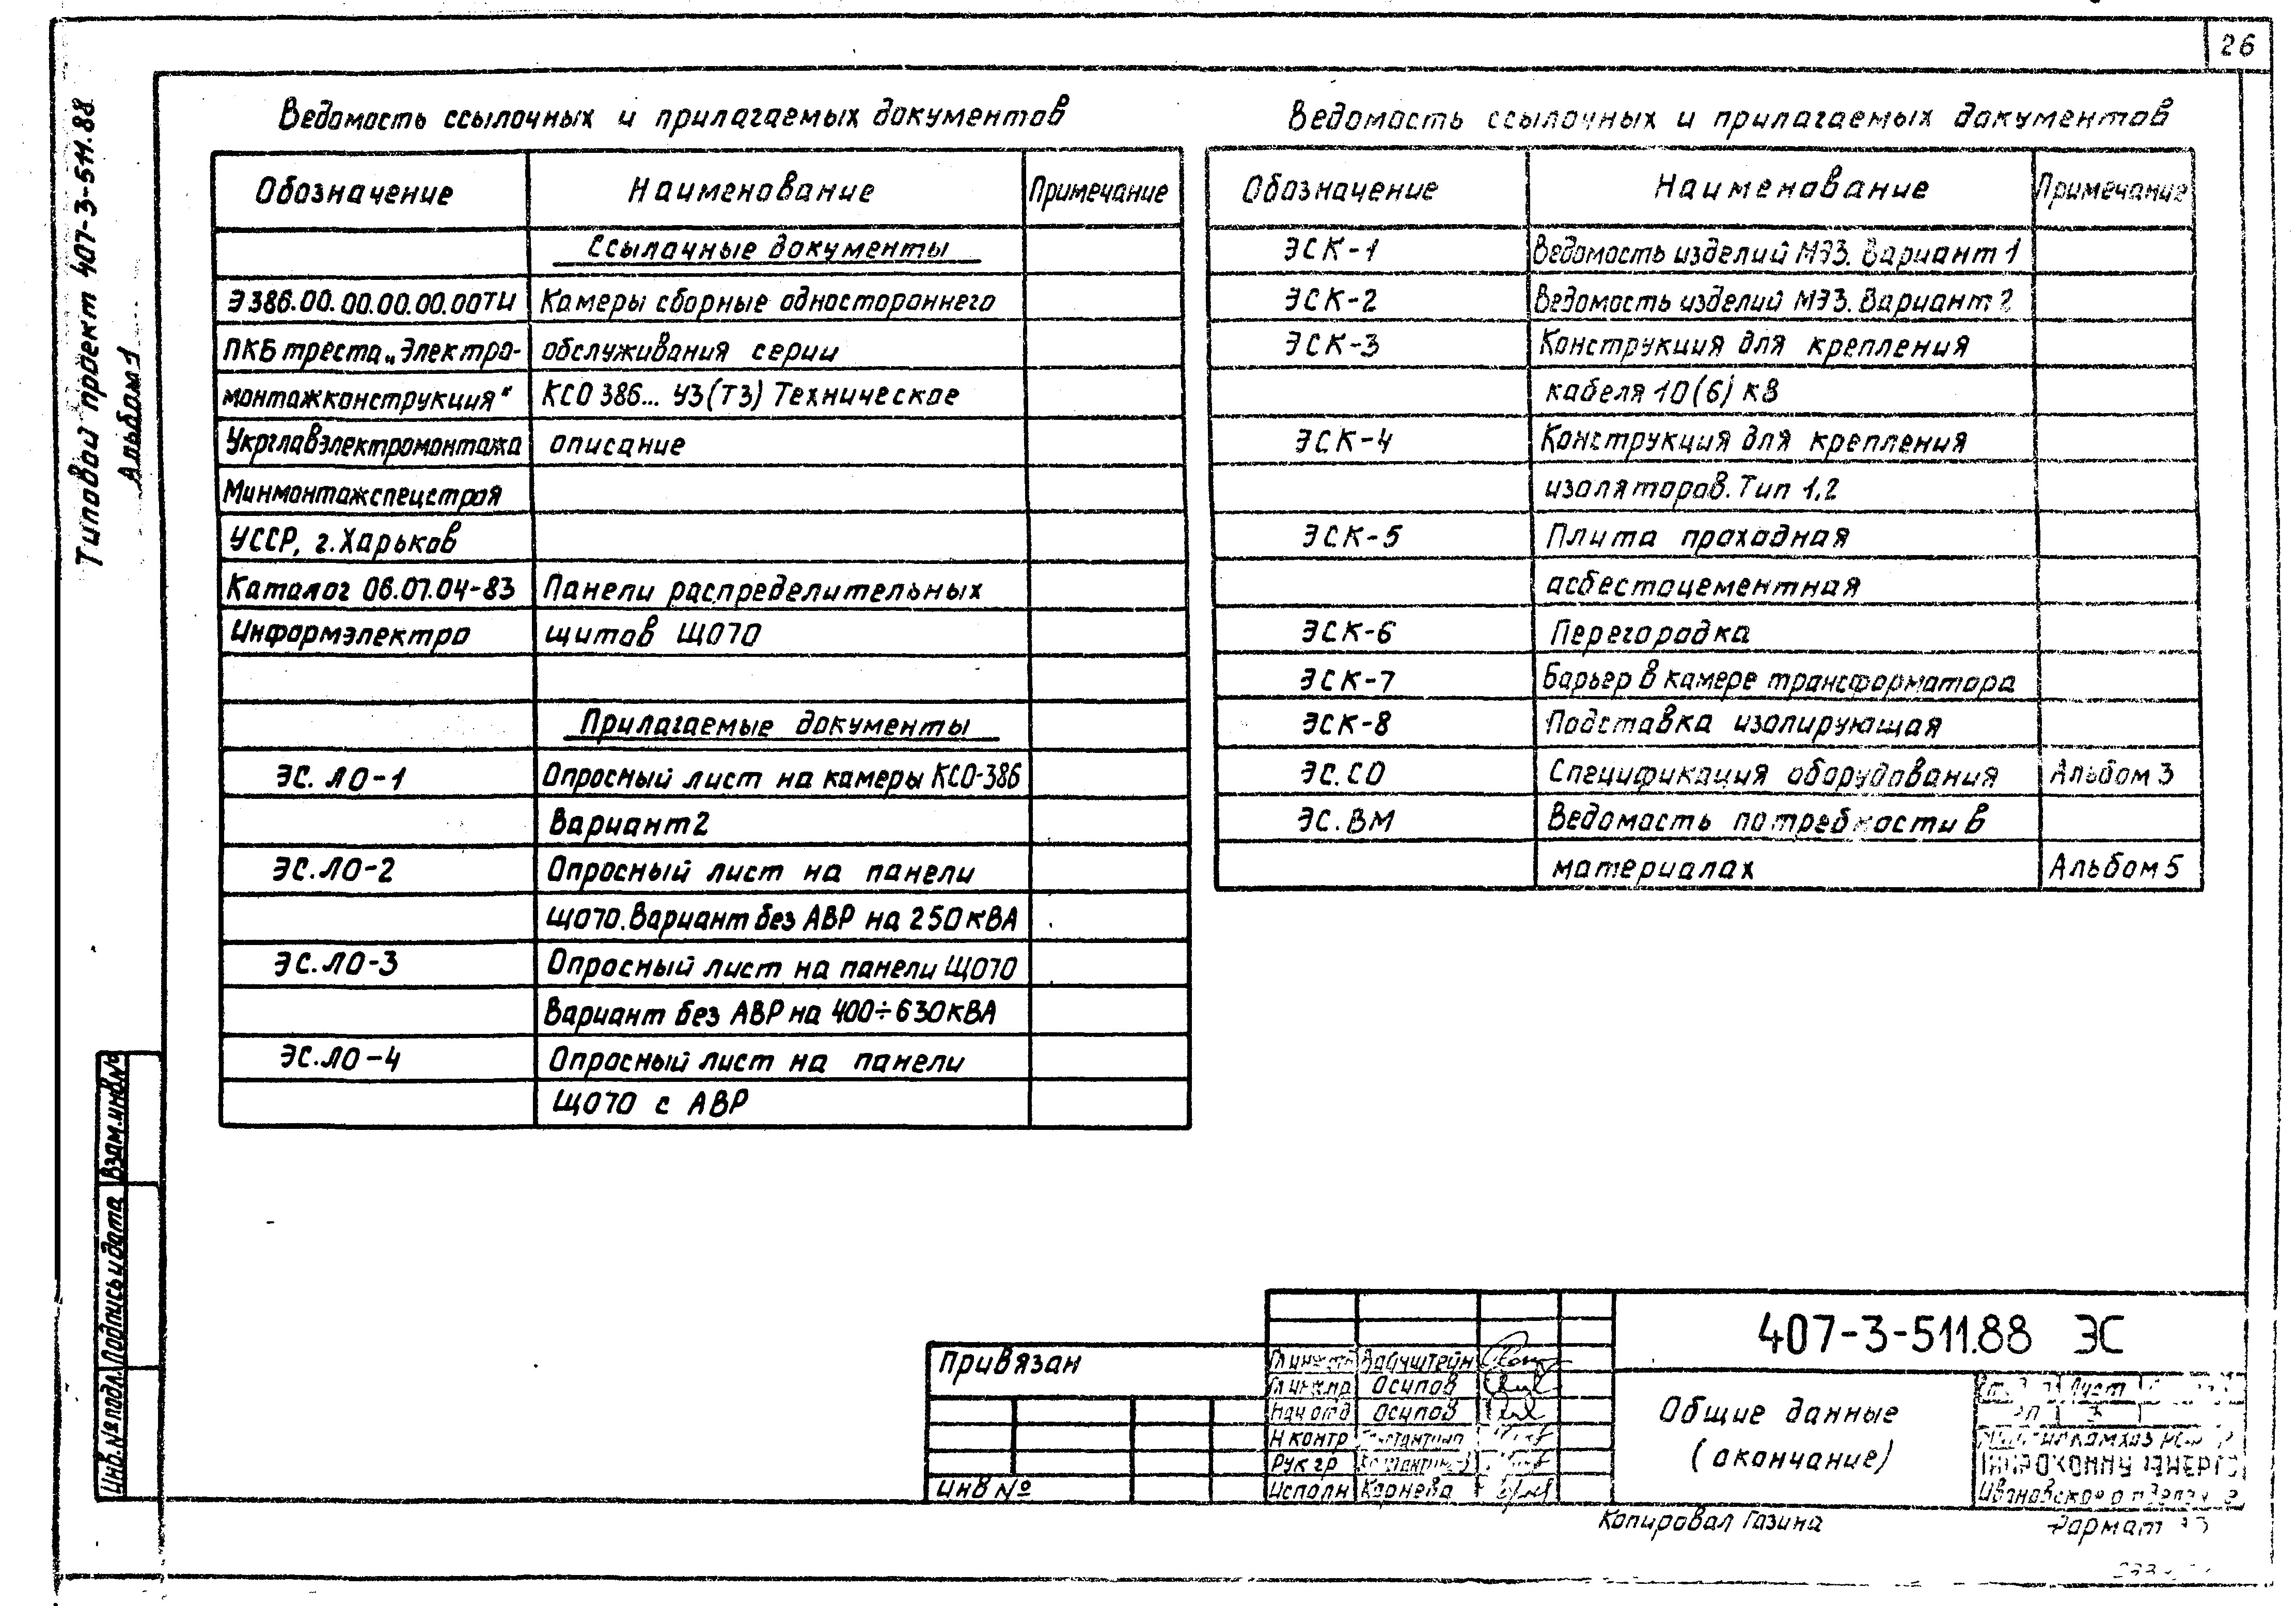 26
Типовой проект 407-3-511.88
Альбом 1
Ведомость ссылочных и прилагаемых документов
Обозначение Наименование Примечание
Ссылочные документы
Э386.00.00.00.00.00ТИ Камеры сборные одностороннего
ПКБ треста „Электро- обслуживания серии
монтажконструкция" КСО 386... У3(Т3) Техническое
Укрглавэлектромонтажа описание
Минмонтажспецстроя
УССР, г. Харьков
Каталог 06.07.04-83 Панели распределительных
Информэлектро щитов ЩО70
Прилагаемые документы
ЭС. ЛО-1 Опросный лист на камеры КСО-386
Вариант 2
ЭС.ЛО-2 Опросный лист на панели
ЩО70. Вариант без АВР на 250 кВА
ЭС.ЛО-3 Опросный лист на панели ЩО70
Вариант без АВР на 400÷630 кВА
ЭС.ЛО-4 Опросный лист на панели
ЩО70 с АВР
Ведомость ссылочных и прилагаемых документов
Обозначение Наименование Примечание
ЭСК-1 Ведомость изделий МЭЗ. Вариант 1
ЭСК-2 Ведомость изделий МЭЗ. Вариант 2
ЭСК-3 Конструкция для крепления
кабеля 10(6) кВ
ЭСК-4 Конструкция для крепления
изоляторов. Тип 1,2
ЭСК-5 Плита проходная
асбестоцементная
ЭСК-6 Перегородка
ЭСК-7 Барьер в камере трансформатора
ЭСК-8 Подставка изолирующая
ЭС.СО Спецификация оборудования Альбом 3
ЭС.ВМ Ведомость потребности в
материалах Альбом 5
Взам.инв.№
Подпись и дата
Инв.№ подл.
Привязан
Инв №
Осипов
Нач отд Осипов
Н контр
Рук гр
Исполн Корнева
407-3-511.88 ЭС
Общие данные
(окончание)
Лист
3
Копировал Газина
Формат А3